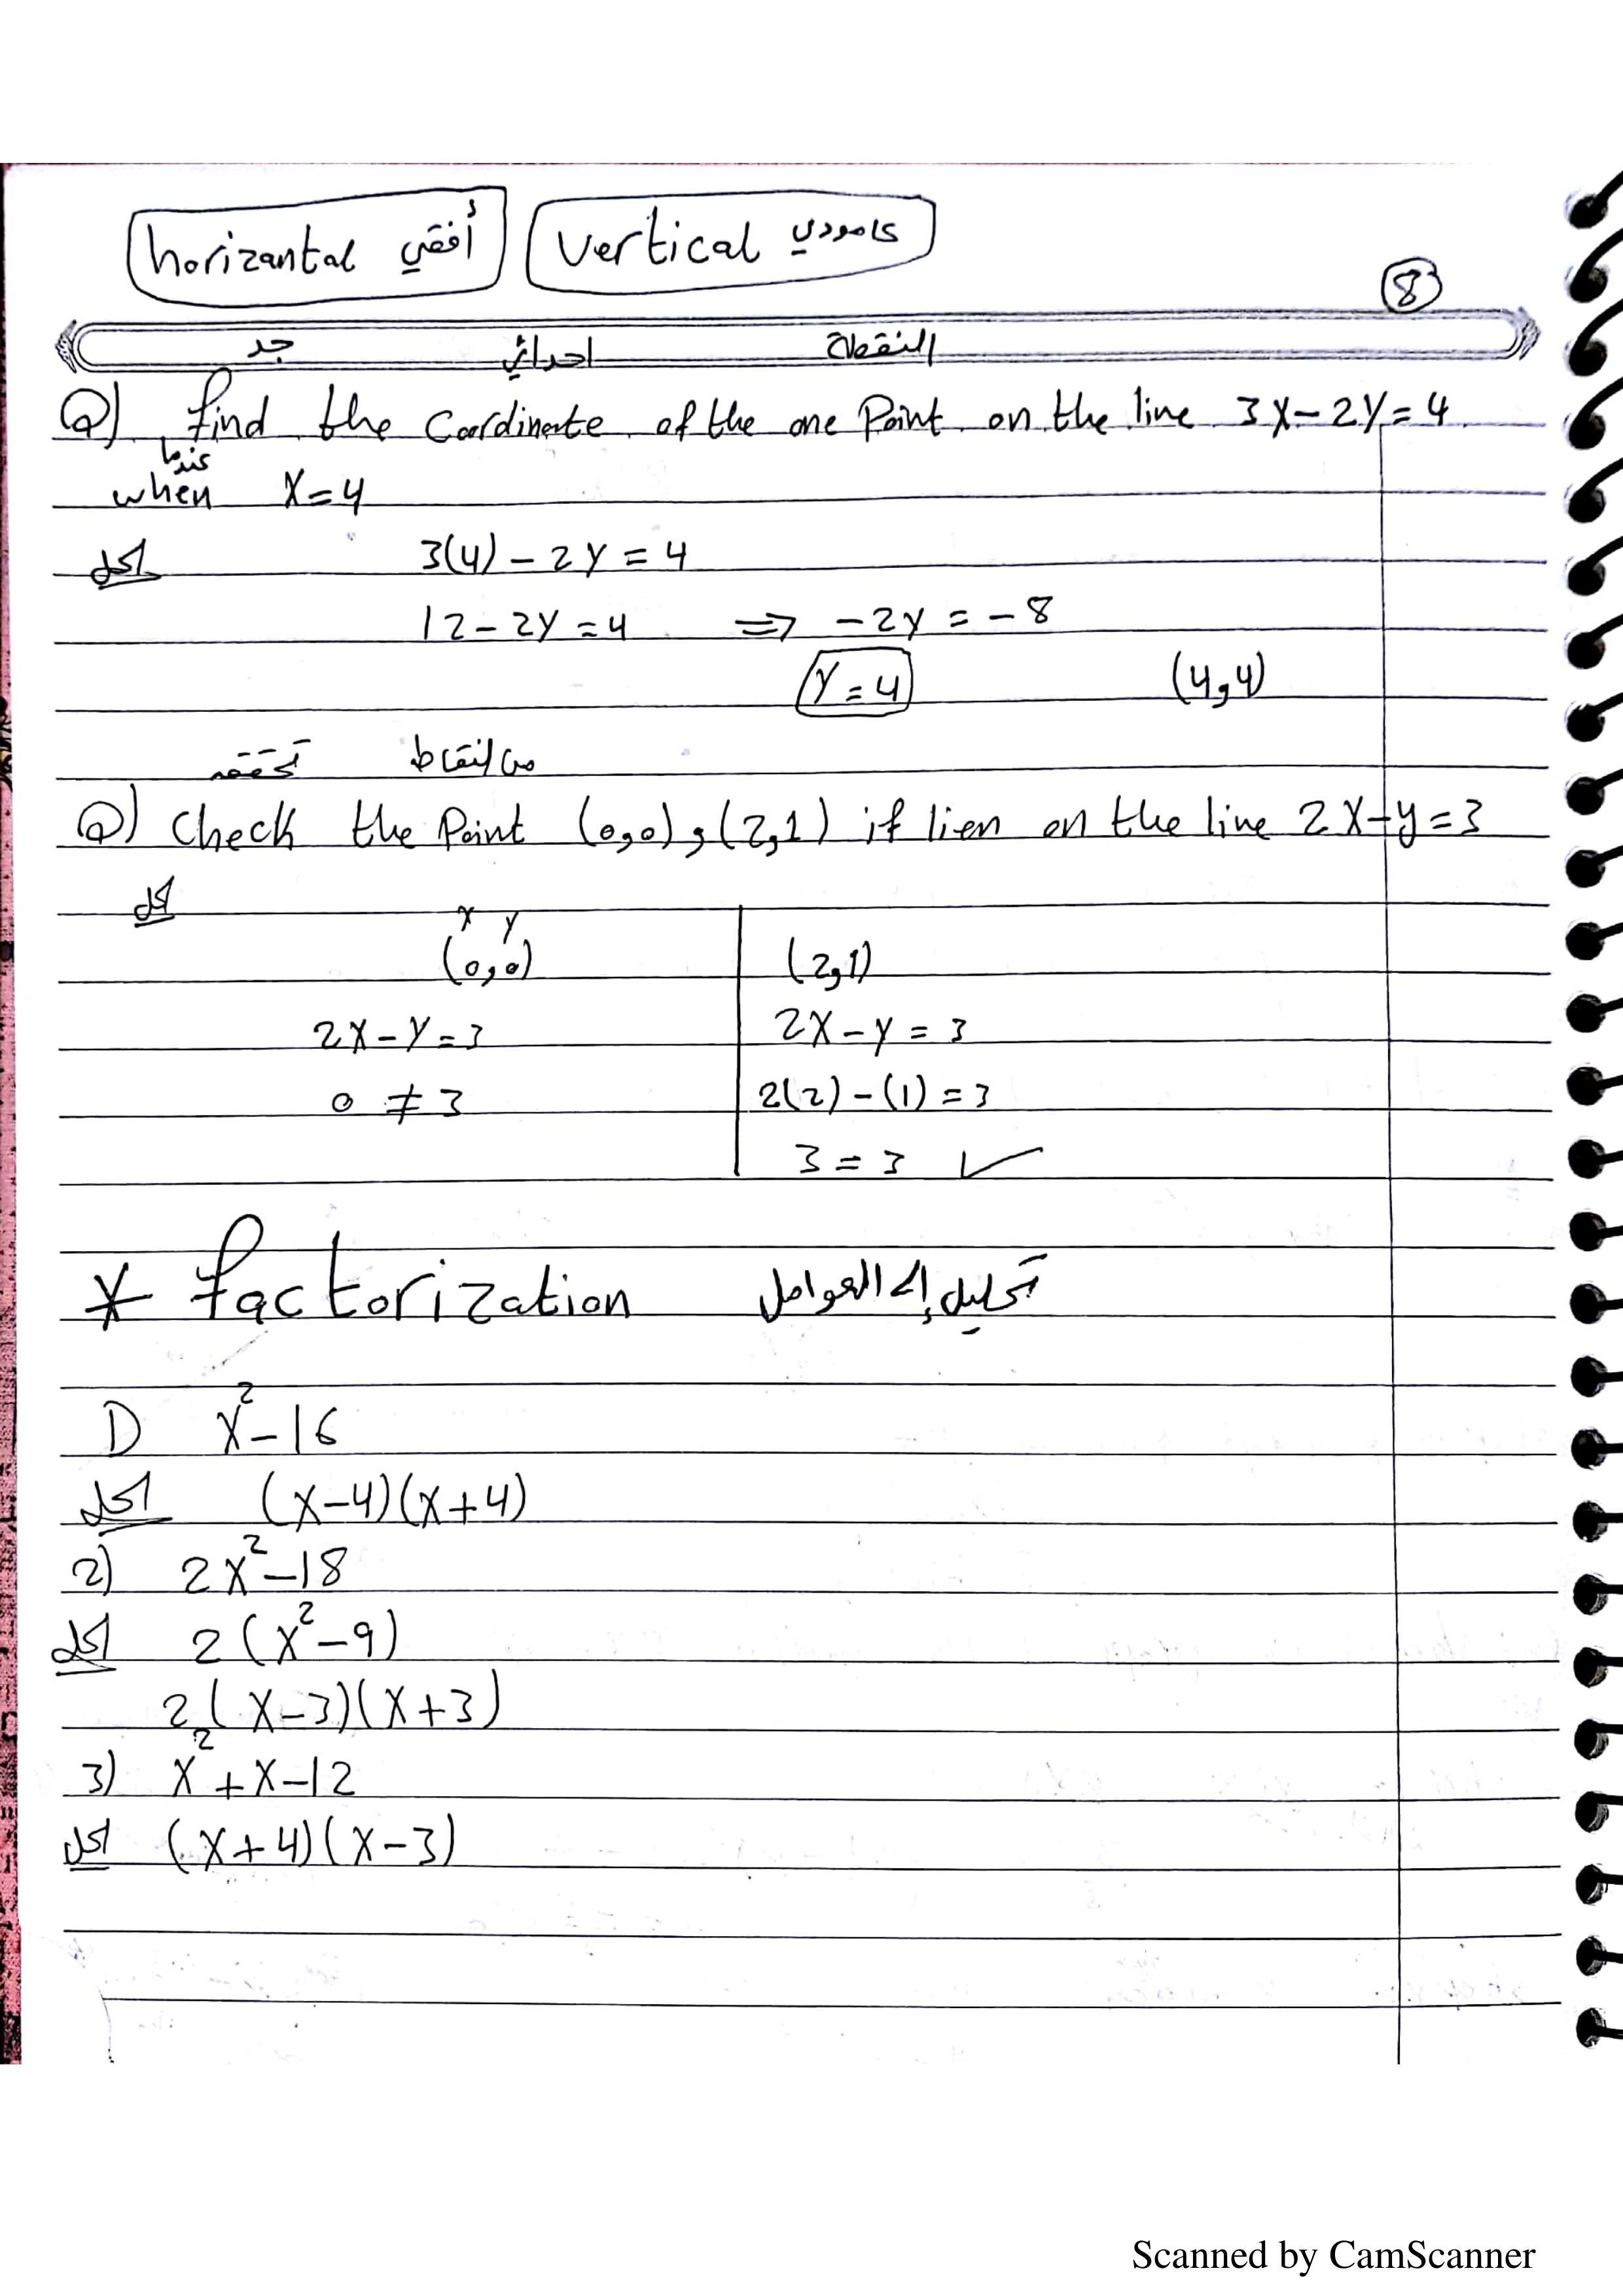 horizantal أفقي
vertical عامودي
8
جد احداثي النقطة
Q) find the Coordinate of the one Point on the line 3x-2y=4
عندما
when x=4
الحل 3(4)-2y=4
12-2y=4 ⇒ -2y=-8
y=4 (4,4)
تحقق من النقاط
Q) Check the Point (0,0),(2,1) if lien on the line 2x-y=3
الحل
x y
(0,0) (2,1)
2x-y=3 2x-y=3
0≠3 2(2)-(1)=3
3=3 ✓
* factorization تحليل إلى العوامل
1) x²-16
الحل (x-4)(x+4)
2) 2x²-18
الحل 2(x²-9)
2(x-3)(x+3)
3) x²+x-12
الحل (x+4)(x-3)
Scanned by CamScanner